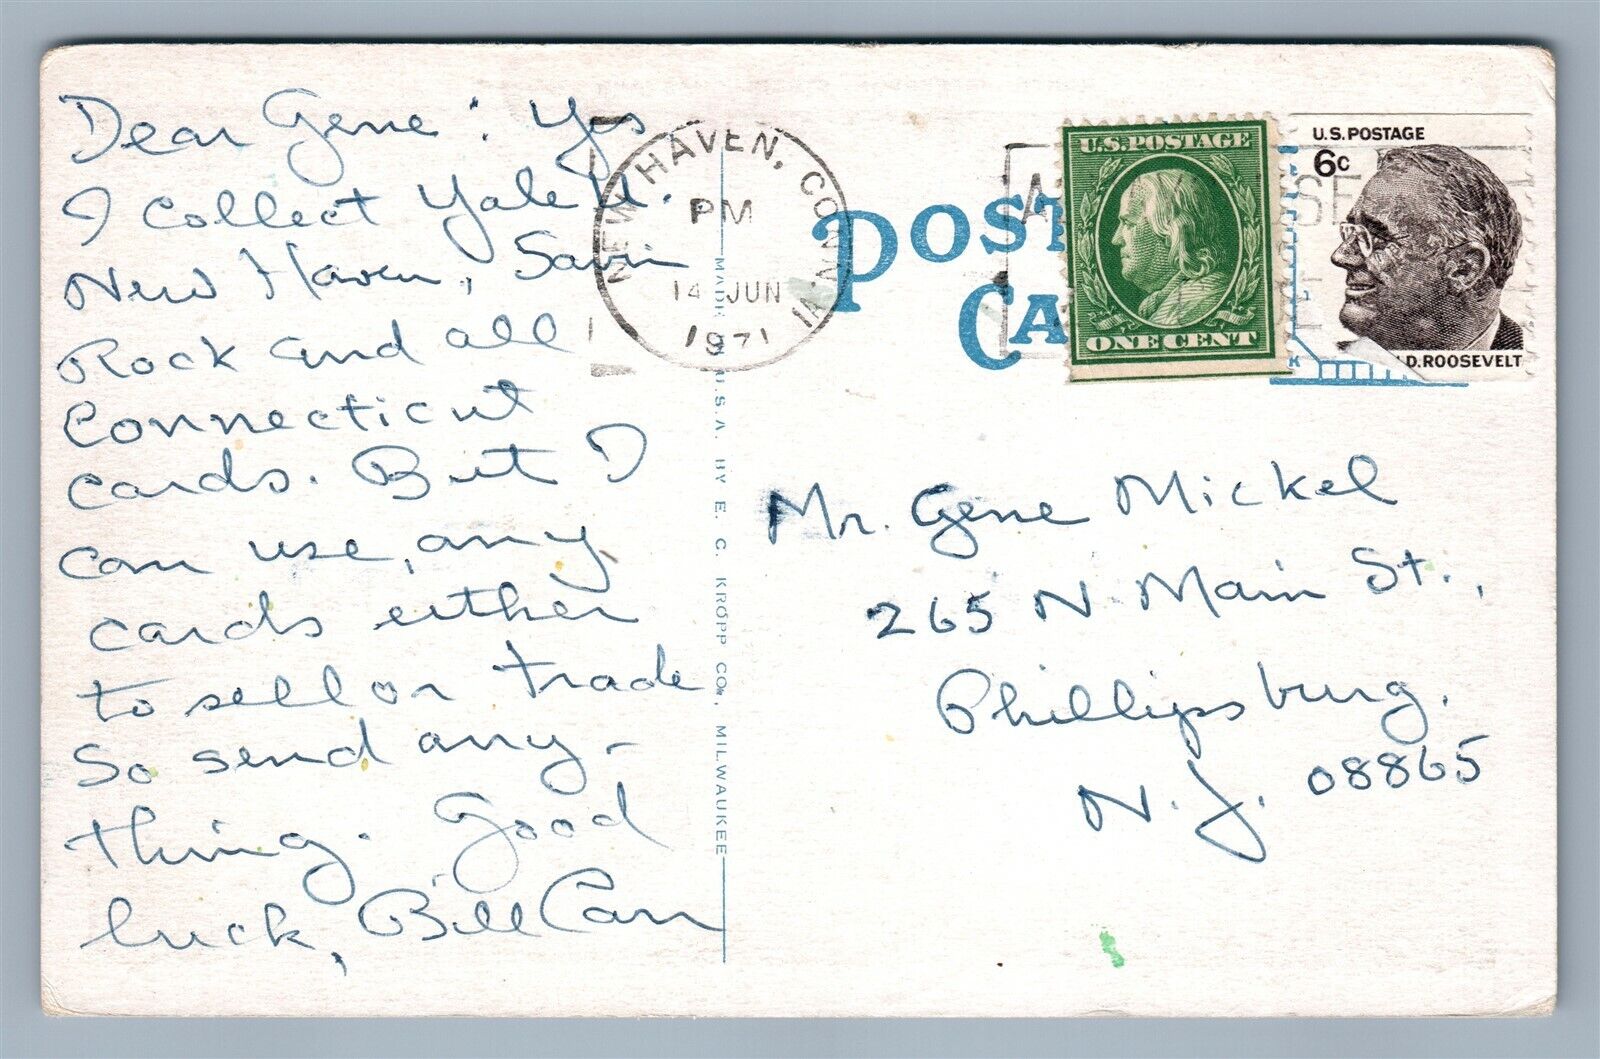 Dear Gene: Yes
I collect Yale U.
New Haven, Savin
Rock and all
Connecticut
cards. But I
can use, any
cards either
to sell or trade
So send any-
thing. Good
luck, Bill Carr
NEW HAVEN, CONN.
PM
14 JUN
1971
MADE IN U.S.A. BY E. C. KROPP CO., MILWAUKEE
POST
CA
U.S. POSTAGE
ONE CENT
U.S. POSTAGE
6c
D. ROOSEVELT
Mr. Gene Mickel
265 N. Main St.,
Phillipsburg,
N.J. 08865